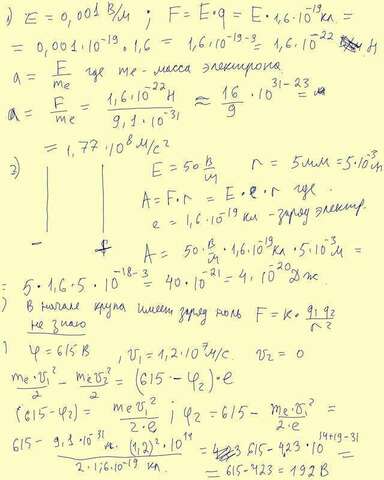 1) E = 0,001 В/м ; F = E·q = E·1,6·10⁻¹⁹ кл. =
= 0,001·10⁻¹⁹·1,6 = 1,6·10⁻¹⁹⁻³ = 1,6·10⁻²² Н
a = F/me где me - масса электрона
a = F/me = 1,6·10⁻²² Н / 9,1·10⁻³¹ ≈ 16/9 · 10³¹⁻²³ =
= 1,77·10⁸ м/с²
2) E = 50 В/м r = 5мм = 5·10⁻³ м
A = F·r = E·e·r где
e = 1,6·10⁻¹⁹ кл - заряд электр.
- +
A = 50 В/м · 1,6·10⁻¹⁹ кл · 5·10⁻³ м =
= 5·1,6·5·10⁻¹⁸⁻³ = 40·10⁻²¹ = 4·10⁻²⁰ Дж.
) В начале крупа имеет заряд ноль F = к · q₁q₂/r²
не знаю
) φ = 615 В , v₁ = 1,2·10⁷ м/с. v₂ = 0
me·v₁²/2 - me·v₂²/2 = (615 - φ₂)·e
(615 - φ₂) = me·v₁²/2·e ; φ₂ = 615 - me·v₁²/2·e =
615 - 9,1·10⁻³¹ кг. (1,2)²·10¹⁴ / 2·1,6·10⁻¹⁹ кл. = 615 - 423·10¹⁴⁺¹⁹⁻³¹
= 615 - 423 = 192 В